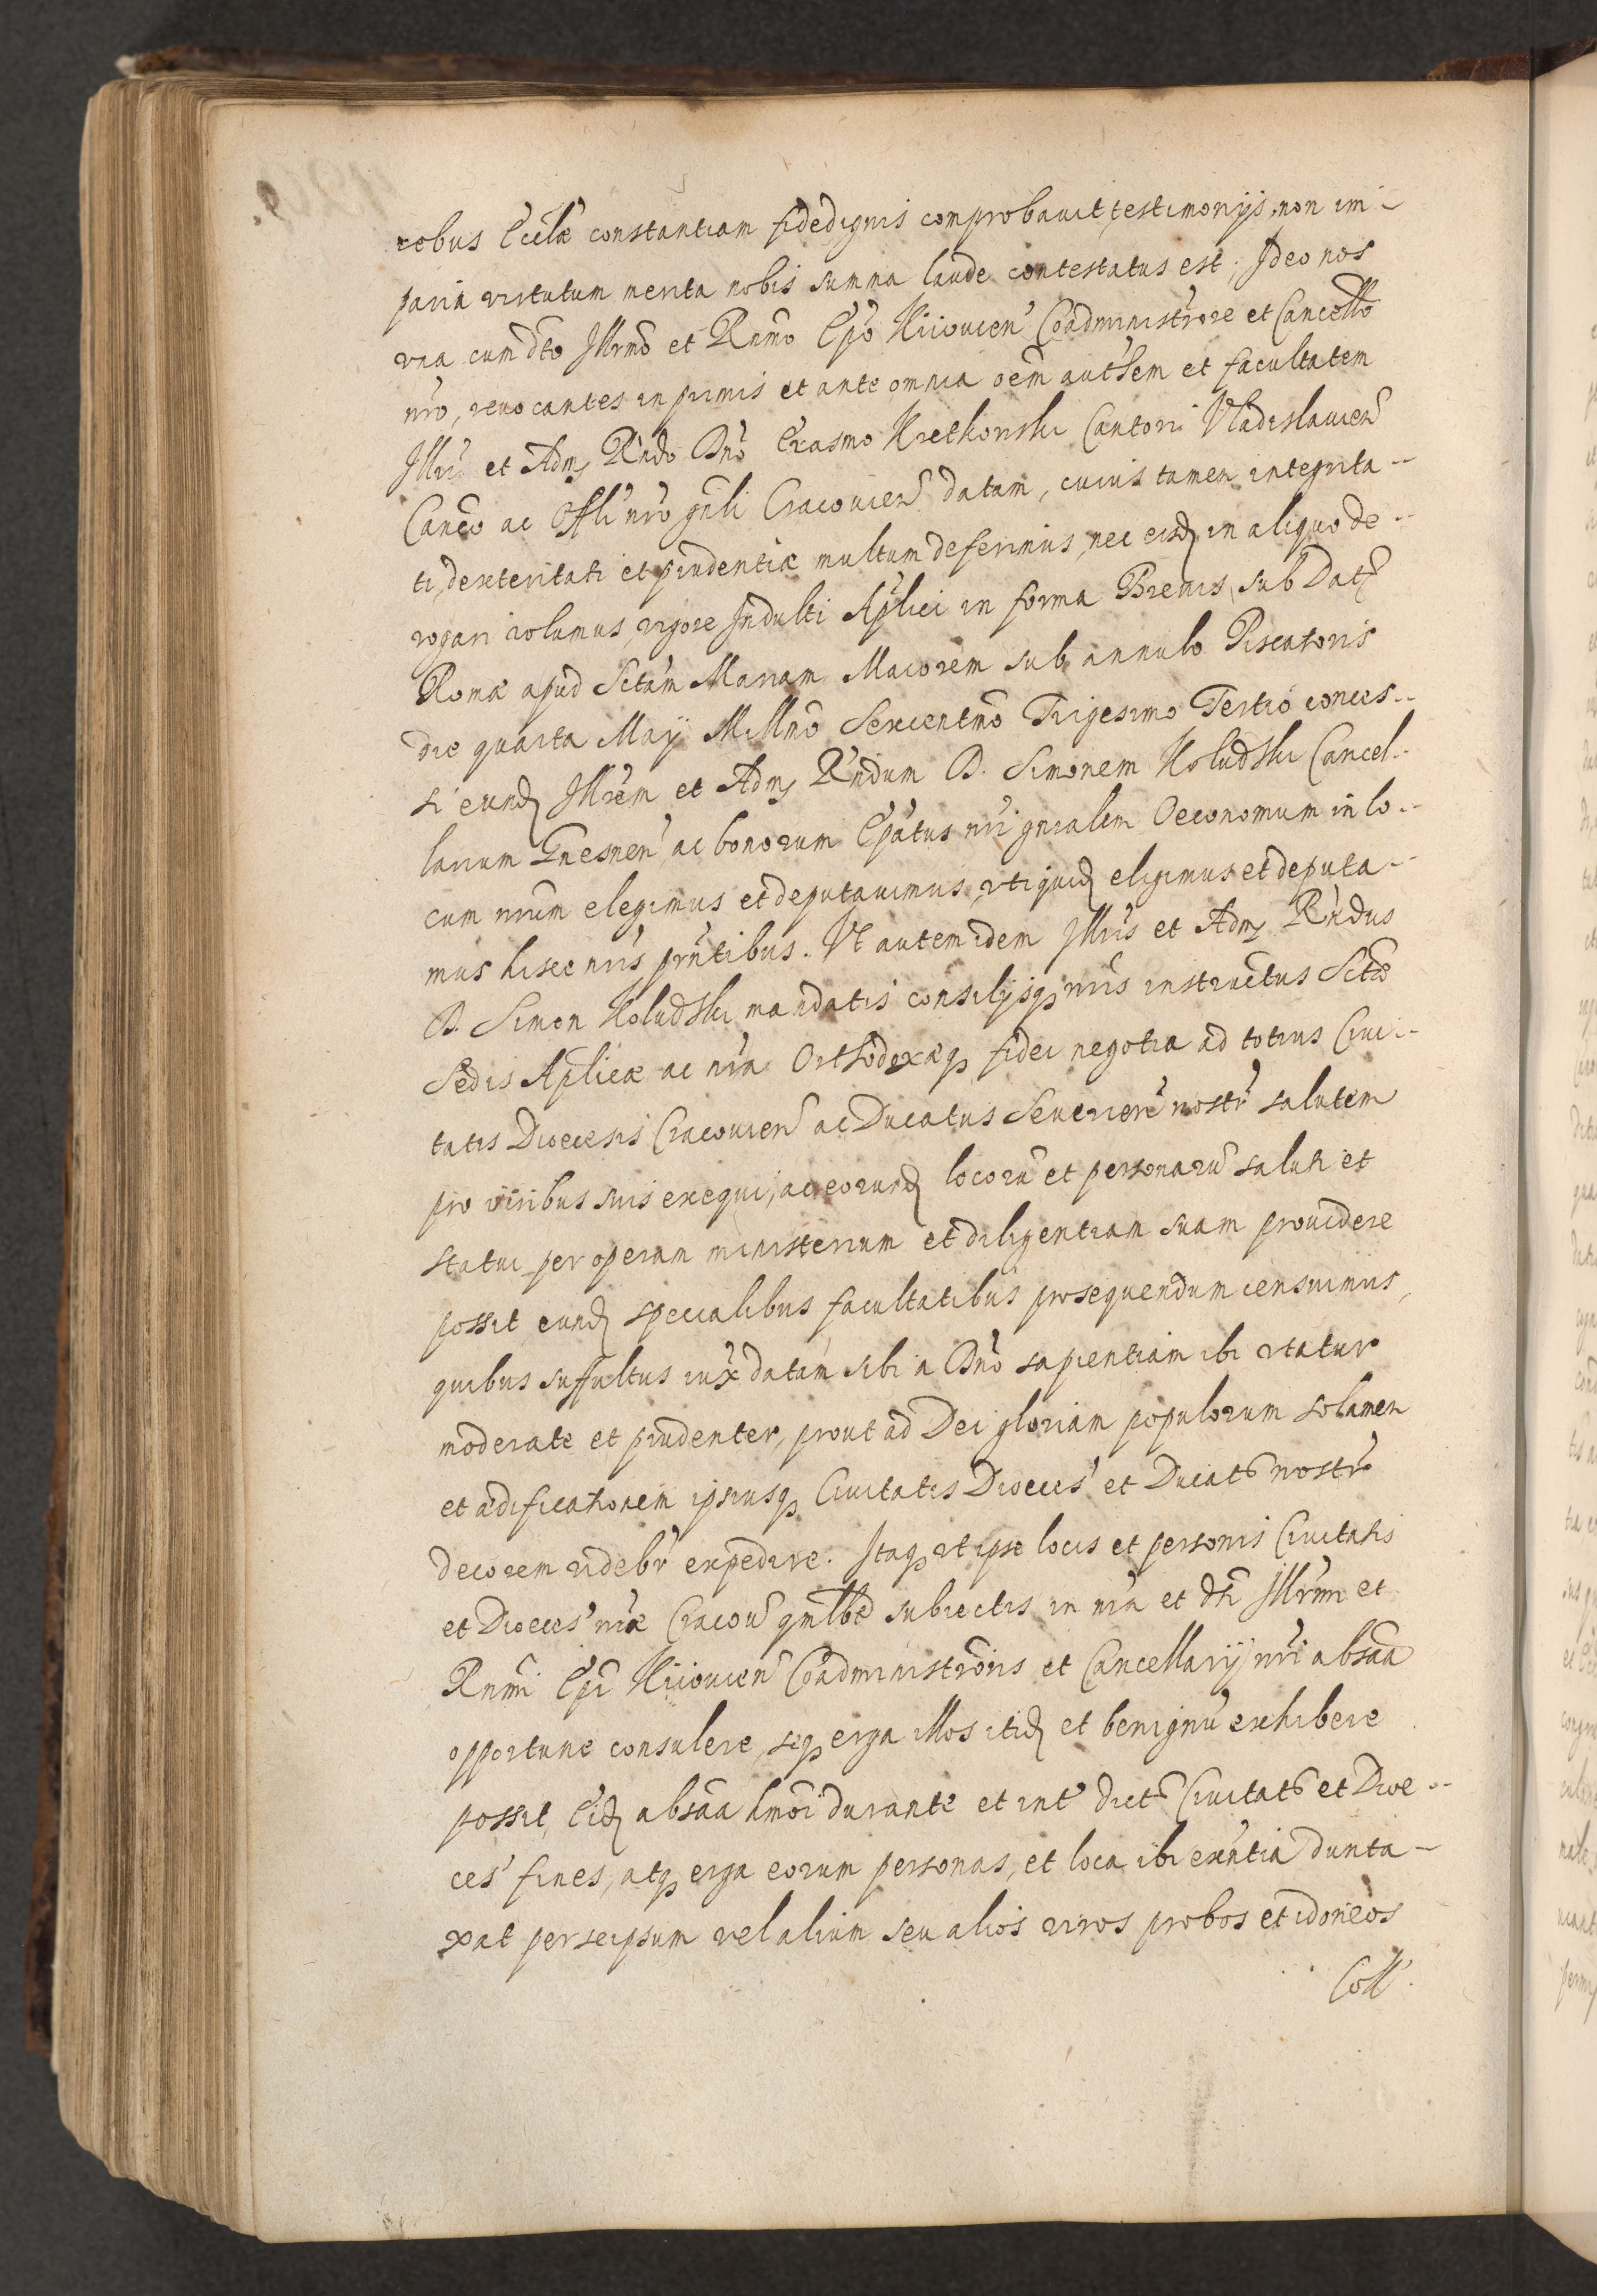 rebus Ecclae constantiam fidedignis comprobavit testimonijs, non im-
paria virtutum merita nobis summa laude contestatus est; Ideo nos
una cum dto Illrmo et Rndmo Epo Kiiovien Coadministrore et Cancello
nro, revocantes in primis et ante omnia oem authem et facultatem
Illri et Adm Rndo Dno Erasmo Kretkowski Cantori Vladislavien
Canco ac Offli nro gnli Cracovien datam, cuius tamen integrita-
ti, dexteritati et prudentiae multum deferimus, nec eisd in aliquo de-
rogari volumus, vigore Indulti Aplici in forma Brevis, sub Dat
Romae apud Sctam Mariam Maiorem sub annulo Piscatoris
die quarta Maij Millmo Sexcentmo Trigesimo Tertio conces-
si eund Illrem et Adm Rndum D. Simonem Koludzki Cancel-
larium Gnesnen, ac bonorum Epatus nri gnralem Oeconomum in lo-
cum nrum elegimus et deputavimus, uti quid eligimus et deputa-
mus hisce nris prntibus. Vt autem idem Illris et Adm Rndus
D. Simon Koludzki mandatis consilijsq nris instructus Sctae
Sedis Aplicae ac nra Orthodoxaeq fidei negotia ad totius Civi-
tatis Dioecesis Cracovien ac Ducatus Severien nostr salutem
pro viribus suis exequi, ac eorund locoru et personaru saluti et
statui per operam ministerium et diligentiam suam providere
possit eund specialibus facultatibus prosequendum censuimus,
quibus suffultus iux datam sibi a Dno sapientiam ibi utatur
moderate et prudenter, prout ad Dei gloriam populorum solamen
et aedificationem ipsiusq Civitatis Dioeces et Ducat nostr
decorem videbr expedire. Itaq ut ipse locis et personis Civitatis
et Dioeces nrae Cracov qmlbt subiectis in nra et dti Illrmi et
Rnmi Epi Kiiovien Coadministroris et Cancellarij nri absaa
opportune consulere, seq erga illos itid et benignu exhibere
possit, Eid absaa hmoi durante et int dict Civitat et Dioe-
ces fines, atq erga eorum personas, et loca ibi exntia dunta-
xat per seipsum vel alium seu alios viros probos et idoneos
Coll.